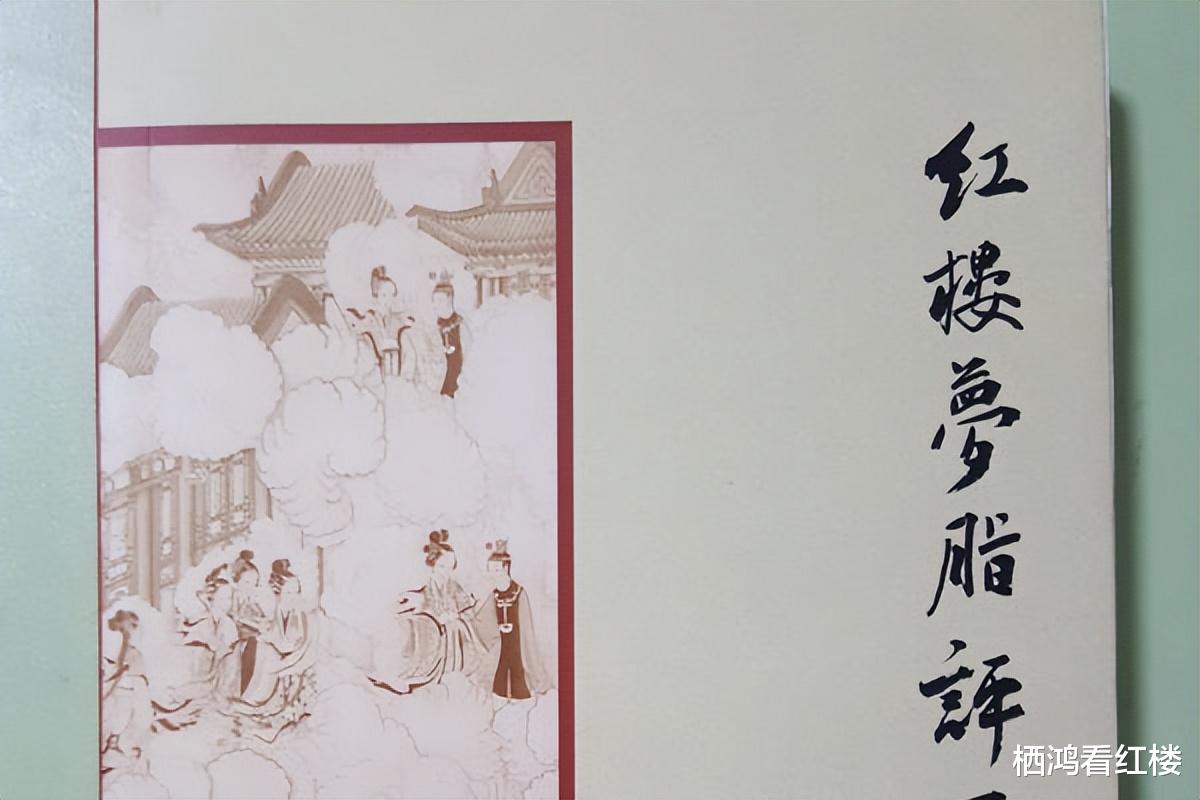 红楼梦脂評
栖鸿看红楼